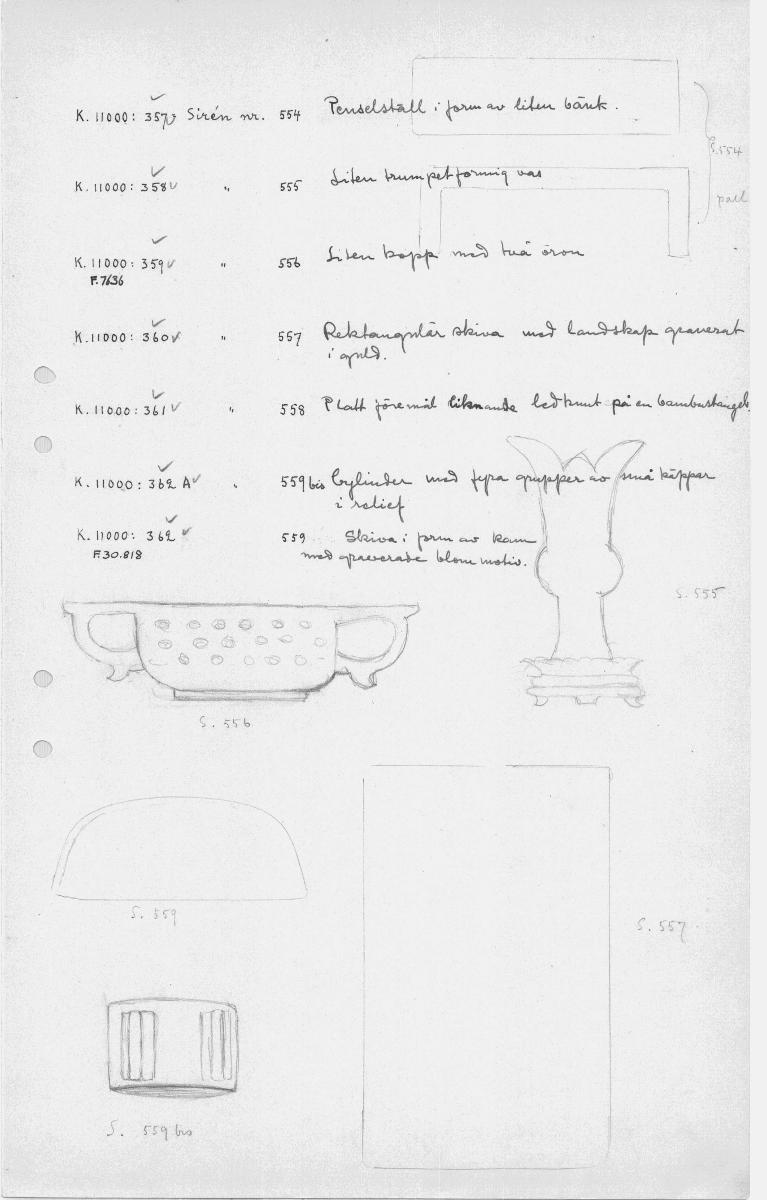 K. 11000: 357 Sirén nr. 554 Penselställ i form av liten bänk.
S. 554
K. 11000: 358 " 555 Liten trumpetformig vas
pall
K. 11000: 359 " 556 Liten kopp med två öron
F. 7636
K. 11000: 360 " 557 Rektangulär skiva med landskap graverat
i guld.
K. 11000: 361 " 558 Platt föremål liknande ledknut på en bambustängel.
K. 11000: 362 A " 559 bis Cylinder med fyra grupper av små käppar
i relief
K. 11000: 362 559 Skiva i form av kam
F. 30.818 med graverade blom motiv.
S. 555
S. 556
S. 559
S. 557
S. 559 bis